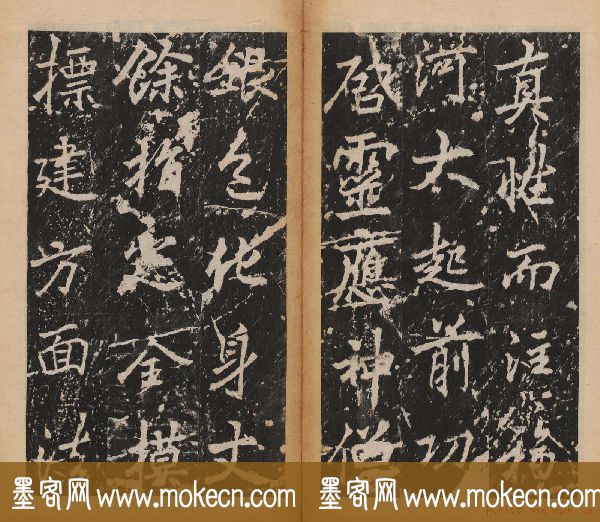 真性而注
河大起前功
啓靈應神僧
銀色化身丈
餘指全模
標建方面法
墨客网 www.mokecn.com 墨客网 www.mokecn.com